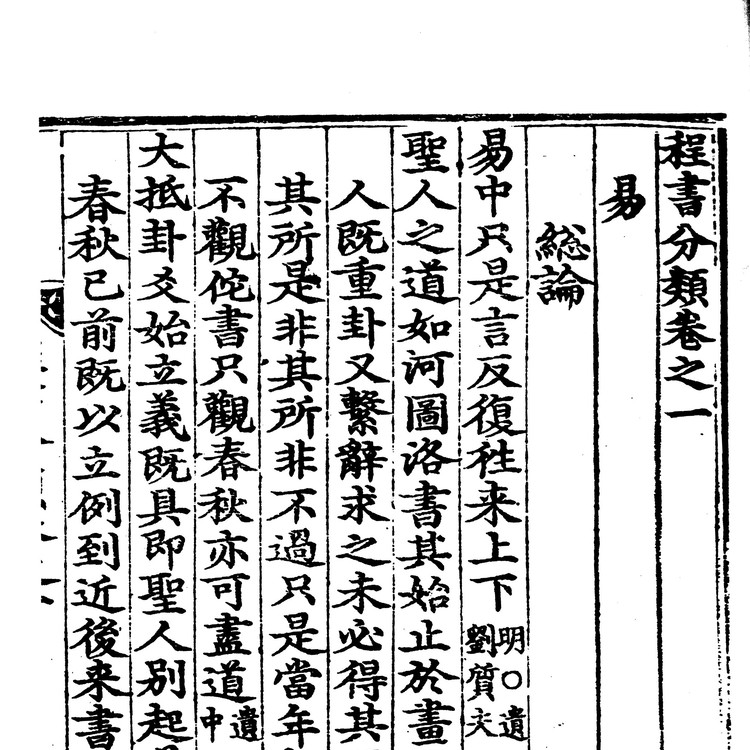 程書分類卷之一
易
総論
易中只是言反復徃来上下 明○遺劉質夫
聖人之道如河圖洛書其始止於畫
人既重卦又繫辭求之未必得其
其所是非其所非不過只是當年
不觀佗書只觀春秋亦可盡道 遺中
大抵卦爻始立義既具即聖人別起
春秋已前既以立例到近後来書